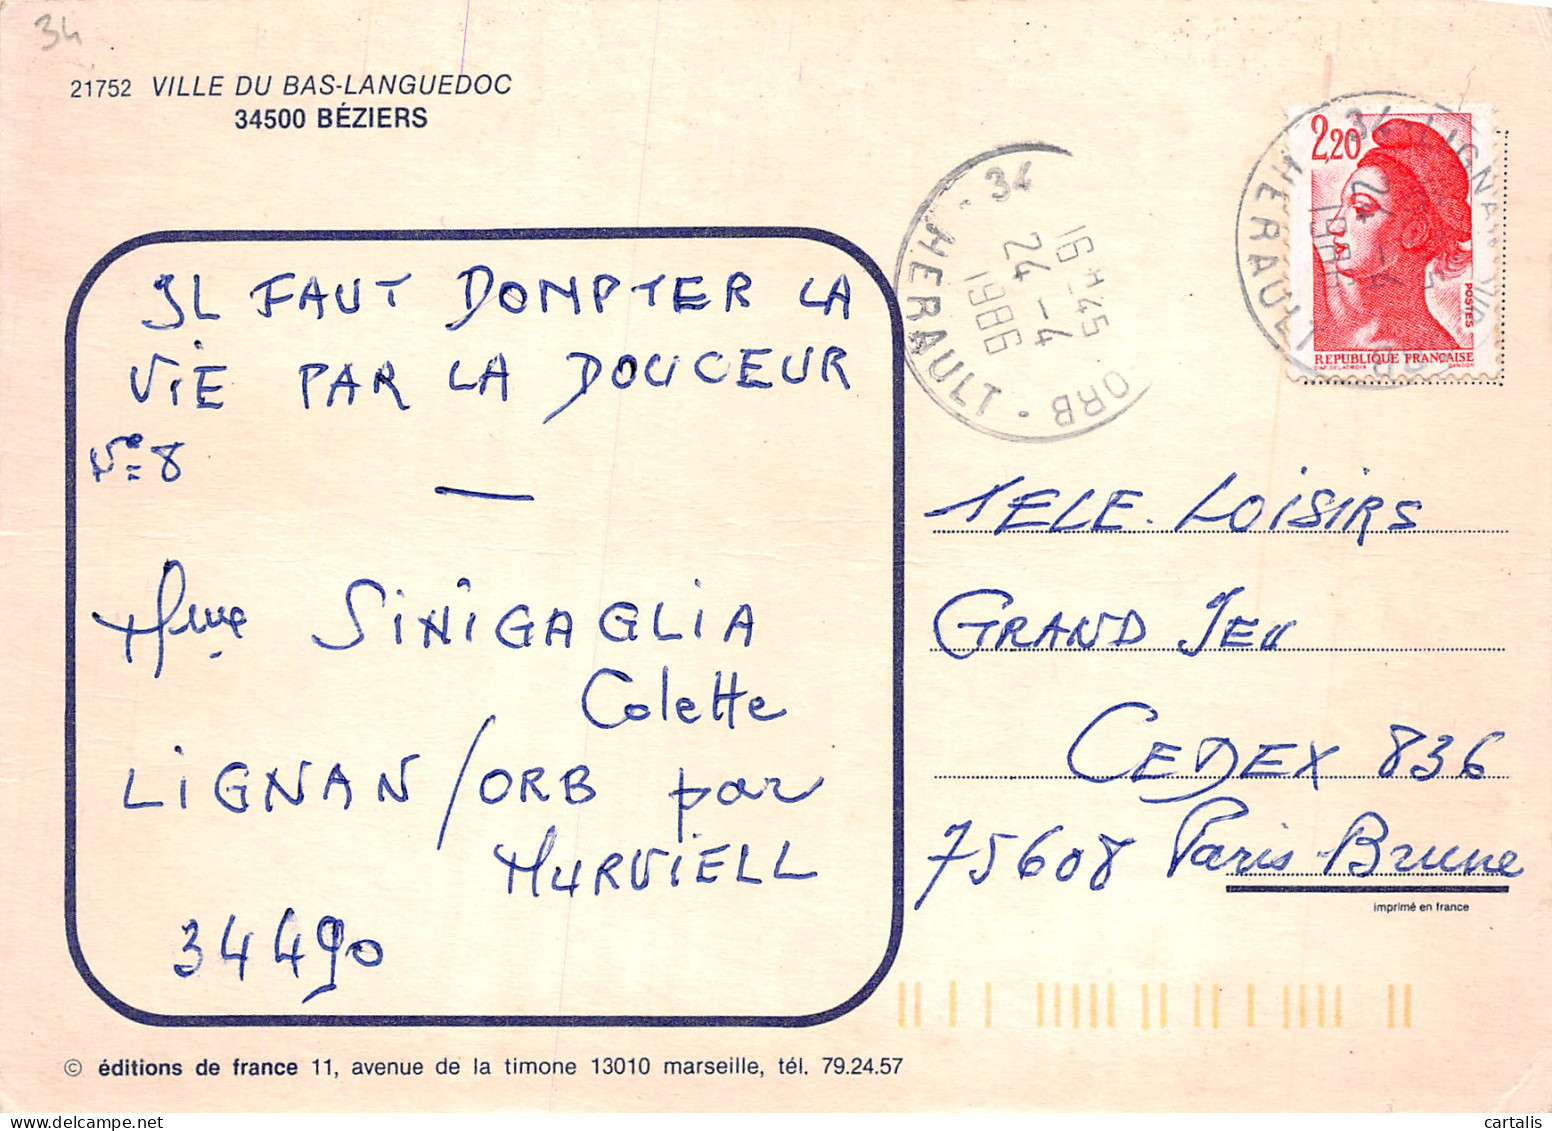 34
21752 VILLE DU BAS-LANGUEDOC
34500 BÉZIERS
IL FAUT DOMPTER LA
VIE PAR LA DOUCEUR
N° 8
Mme SINIGAGLIA
Colette
LIGNAN/ORB par
MURVIELL
34490
34
16H45
24-4
1986
ORB · HERAULT
34 LIGNAN
24-4
1986
HERAULT
2,20
POSTES
REPUBLIQUE FRANÇAISE
D'AP. DELACROIX GANDON
TELE-LOISIRS
GRAND JEU
CEDEX 836
75608 Paris-Brune
imprimé en france
© éditions de france 11, avenue de la timone 13010 marseille, tél. 79.24.57
cartalis